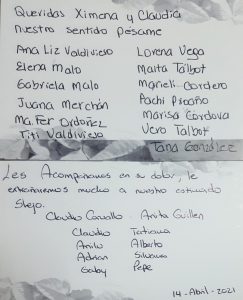 Queridas Ximena y Claudia
nuestro sentido pésame
Ana Liz Valdivieso Lorena Vega
Elena Malo Maita Talbot
Gabriela Malo Marieli Cordero
Juana Merchán Pochi
Ma. Fer Ordoñez Marisa Cordova
Titi Valdivieso Vero Talbot
Tana González
Les Acompañamos en su dolor, le
extrañaremos mucho a nuestro estimado
Claudio Carvallo - Anita Guillen
Claudia Tatiana
Anilu Alberto
Adrian Silvana
Gaby Pepe
14-Abril-2021